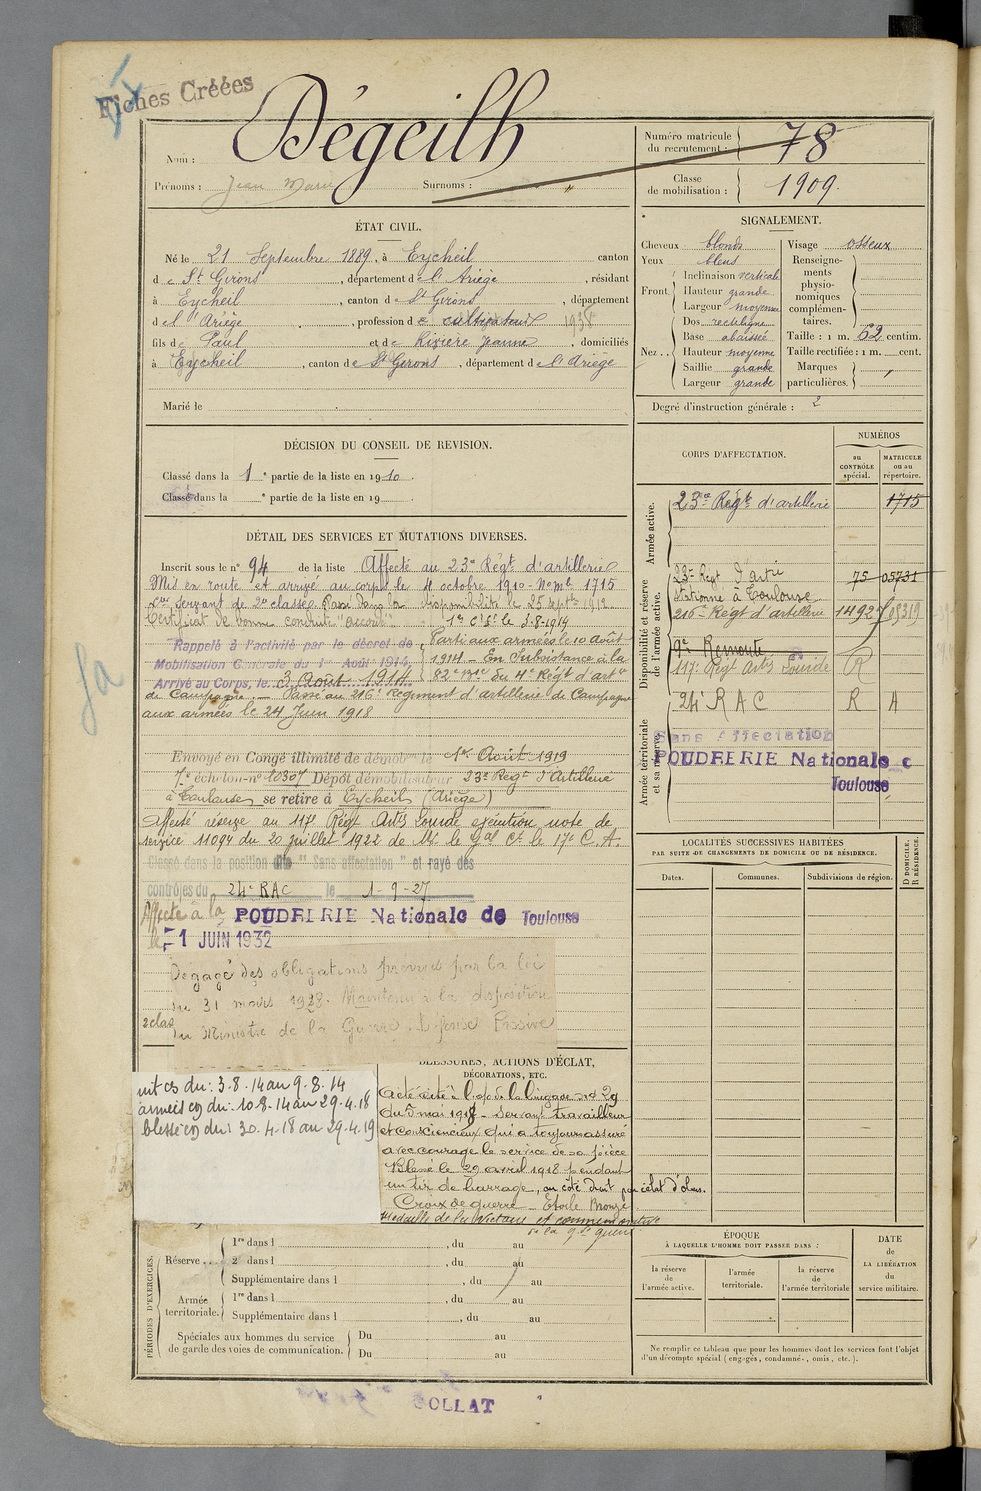 Fiches Créées
Nom : Dégeilh
Prénoms : Jean Marie Surnoms : "
Numéro matricule du recrutement : 78
Classe de mobilisation : 1909.
ÉTAT CIVIL.
Né le 21 Septembre 1889, à Eycheil canton
de St Girons, département de l'Ariège, résidant
à Eycheil, canton de St Girons, département
de l'Ariège, profession de cultivateur 1938
fils de Paul et de Rizière Jeanne, domiciliés
à Eycheil, canton de St Girons, département de l'Ariège
Marié le
SIGNALEMENT.
Cheveux blonds
Yeux bleus
Front Inclinaison verticale
Hauteur grande
Largeur moyenne
Nez Dos rectiligne
Base abaissée
Hauteur moyenne
Saillie grande
Largeur grande
Visage osseux
Renseignements physionomiques complémentaires.
Taille : 1 m. 62 centim.
Taille rectifiée : 1 m. cent.
Marques particulières.
Degré d'instruction générale : 2
DÉCISION DU CONSEIL DE REVISION.
Classé dans la 1e partie de la liste en 1910.
Classé dans la e partie de la liste en 19
DÉTAIL DES SERVICES ET MUTATIONS DIVERSES.
Inscrit sous le n° 94 de la liste Affecté au 23e Régt d'artillerie
Mis en route et arrivé au corps le 4 octobre 1910 - No mle 1715
servant de 2e classe. Passé dans la disponibilité le 25 septbre 1912
Certificat de bonne conduite "accordé"
1re Cie le 3-8-1914
Rappelé à l'activité par le décret de
Mobilisation Générale du 1er Août 1914,
Arrivé au Corps, le 3 Août 1914
Parti aux armées le 10 Août
1914 - En Subsistance à la
82e Brie du 4e Régt d'artie
de Campagne. - Passé au 216e Régiment d'artillerie de Campagne
aux armées le 24 Juin 1918
Envoyé en Congé illimité de démob le 1er Août 1919
7e échelon n° 10307 Dépôt démobilisateur 23e Régt d'Artillerie
à Toulouse se retire à Eycheil (Ariège)
Affecté réserve au 117e Régt Artie Lourde exécution note de
service 11094 du 20 juillet 1922 de Mr le Gal Ct le 17e C.A.
Classé dans la position dite "Sans affectation" et rayé des
contrôles du 24e RAC le 1-9-27
Affecté à la POUDRERIE Nationale de Toulouse
le 1 JUIN 1932
Dégagé des obligations prévues par la loi
du 31 mars 1928. Maintenu à la disposition
du Ministre de la Guerre. Défense Passive
2 clas
CORPS D'AFFECTATION.
NUMÉROS
au CONTRÔLE spécial.
MATRICULE ou au répertoire.
Armée active.
23e Régt d'artillerie 1715
Disponibilité et réserve de l'armée active.
23e Régt d'Artie stationné à Toulouse 75 05731
216e Régt d'artillerie 1492
9e Remonte
117e Régt Artie Lourde R
24e R A C R A
Armée territoriale et sa réserve.
Sans Affectation
POUDRERIE Nationale
Toulouse
LOCALITÉS SUCCESSIVES HABITÉES
PAR SUITE DE CHANGEMENTS DE DOMICILE OU DE RÉSIDENCE.
Dates. Communes. Subdivisions de région. D DOMICILE. R RÉSIDENCE.
BLESSURES, ACTIONS D'ÉCLAT,
DÉCORATIONS, ETC.
int cs du : 3.8.14 au 9.8.14
armées cs du : 10.8.14 au 29.4.18
blessé cs du : 30.4.18 au 29.4.19
a été cité à l'o/ de la brigade n° 29
du 5 mai 1918 - Servant travailleur
et consciencieux qui a toujours assuré
avec courage le service de sa pièce
Blessé le 29 avril 1918 pendant
un tir de barrage, au côté droit par éclat d'obus.
Croix de guerre Etoile Bronze
Médaille de la Victoire et commémorative
de la gde guerre
PÉRIODES D'EXERCICES.
Réserve
1re dans l , du au
2e dans l , du au
Supplémentaire dans l , du au
Armée territoriale.
1re dans l , du au
Supplémentaire dans l , du au
Spéciales aux hommes du service de garde des voies de communication.
Du au
Du au
ÉPOQUE
À LAQUELLE L'HOMME DOIT PASSER DANS :
la réserve de l'armée active.
l'armée territoriale.
la réserve de l'armée territoriale
DATE de LA LIBÉRATION du service militaire.
Ne remplir ce tableau que pour les hommes dont les services font l'objet
d'un décompte spécial (engagés, condamnés, omis, etc.).